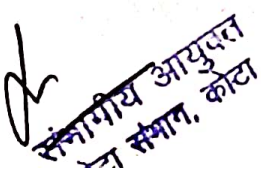 संभागीय आयुक्त
संभाग, कोटा